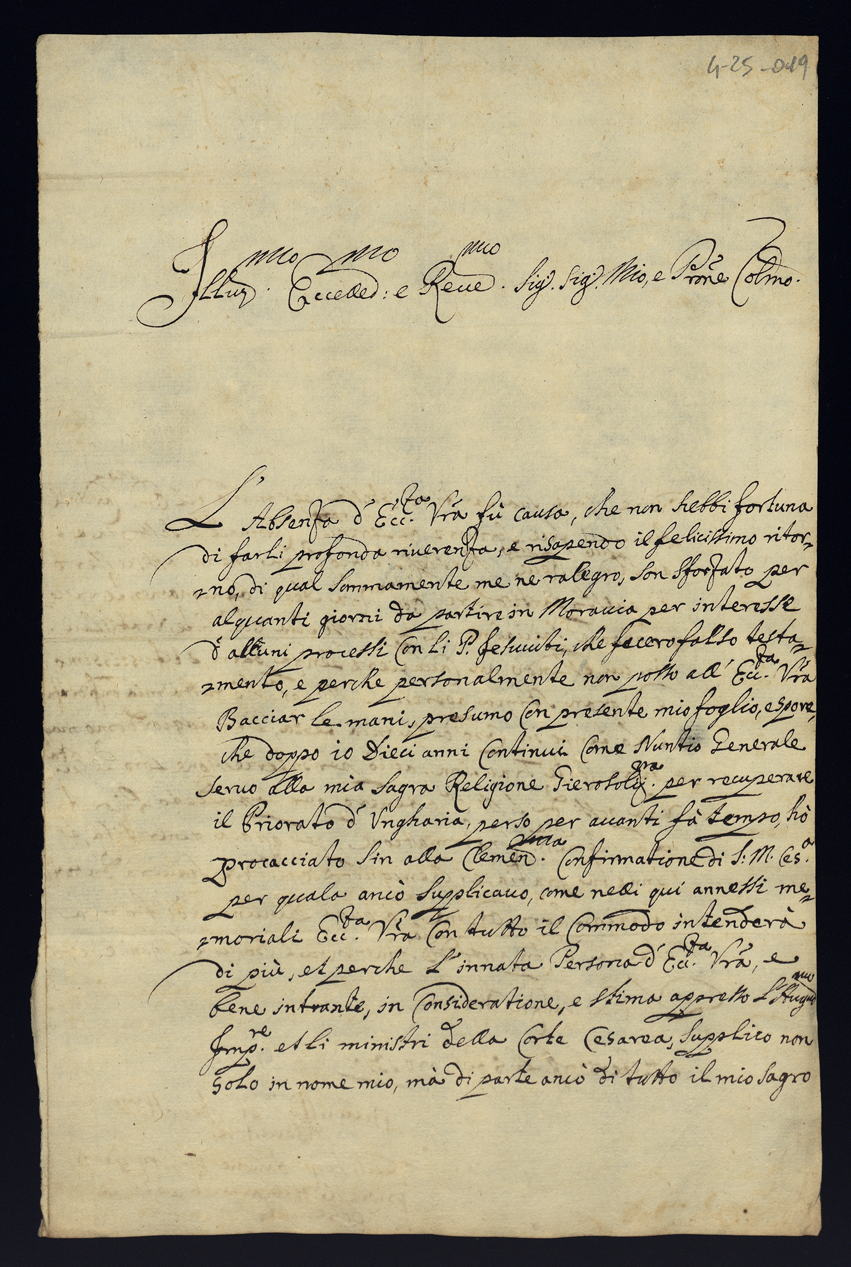 4-25-049
Illus.mo Ecceded:mo e Reue.mo Sig.r Sig.r Mio, e Prone Colmo.
L'Absenza d'Ecc.za Vra fù causa, che non hebbi fortuna
di farli profonda riuerenza, e risapendo il felicissimo ritor=
=no, di qual sommamente me ne ralegro, son sforzato per
alquanti giorni da partire in Morauia per interesse
d'alcuni processi con li P. Jesuuiti, che fecero falso testa=
=mento, e perche personalmente non posso all' Ecc.za Vra
Bacciar le mani, presumo con presente mio foglio, espore,
che doppo io Dieci anni continui come Nuntio Generale
seruo alla mia Sagra Religione Gierosoly.gra per recuperare
il Priorato d'Ungharia, perso per auanti fà tempo, hò
procacciato sin alla Clemen.ma Confirmatione di S: M. Ces.a
per quala anco supplicauo, come nelli qui annessi me=
=moriali Ecc.za Vra con tutto il Commodo intenderà
di più, et perche L'innata Persona d'Ecc.za Vra, e
bene intrante, in consideratione, e stima appresso L'Augu.mo
Imp.re et li ministri della Corte Cesarea, supplico non
solo in nome mio, mà di parte anco di tutto il mio Sagro